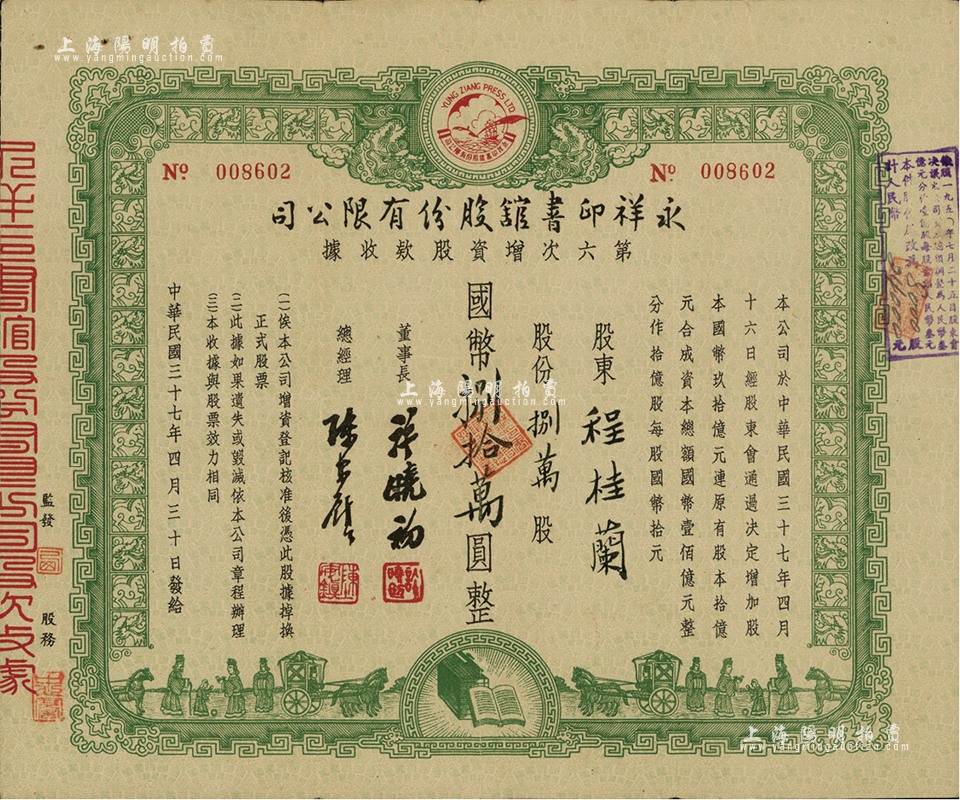 上海陽明拍賣
www.yangmingauction.com
YUNG ZIANG PRESS LTD
No 008602
No 008602
永祥印書舘股份有限公司
第六次增資股款收據
本公司於中華民國三十七年四月
十六日經股東會通過決定增加股
本國幣玖拾億元連原有股本拾億
元合成資本總額國幣壹佰億元整
分作拾億股每股國幣拾元
股東 程桂蘭
股份 捌萬 股
國幣捌拾萬圓整
董事長
總經理
(一)俟本公司增資登記核准後憑此股據掉換
正式股票
(二)此據如果遺失或毀滅依本公司章程辦理
(三)本收據與股票效力相同
中華民國三十七年四月三十日發給
監發
股務
上海陽明拍賣
www.yangmingauction.com
上海陽明拍賣
www.yangmingauction.com